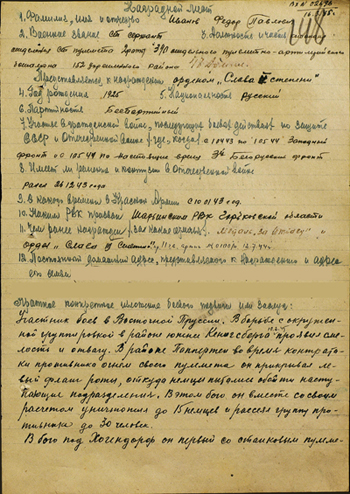 Наградной лист
1. Фамилия, имя и отчество Иванов Федор Павлович
2. Военное звание ст сержант 3. Должность и часть
отделения ст пулемета 2 роты 390 отдельного пулеметно-артиллерийского
батальона 152 укрепленного района
Представляется к награждению орденом „Слава II степени"
4. Год рождения 1925 5. Национальность русский
6. Партийность Беспартийный
7. Участие в гражданской войне, последующих боевых действиях по защите
СССР и Отечественной войне (где, когда) с 10 43 г по 10 5 44 Западный
фронт с 10 5 44 по настоящее время 3й Белорусский фронт
8. Имеет ли ранения и контузии в Отечественной войне
ранен 26 12 43 года
9. С какого времени в Красной Армии с 10 01 43 год.
10. Каким РВК призван РВК Горьковской области
11. Чем ранее награжден (за какие отличия) Медаль „За отвагу"
орден „Слава III степени"
12. Постоянный домашний адрес, представляемого к награждению и адрес
его семьи
Краткое конкретное изложение боевого подвига или заслуг:
Участник боев в Восточной Пруссии. В борьбе с окружен-
ной группировкой в районе южнее Кенигсберга проявил сме-
лость и отвагу. В районе Поппертен во время контрата-
ки противника огнем своего пулемета он прикрывал ле-
вый фланг роты, откуда немцы пытались обойти насту-
пающие подразделения. В этом бою он вместе со своим
расчетом уничтожил до 15 немцев и рассеял группу про-
тивника до 30 человек.
В бою под Хогендорф он первый со станковым пулеме-